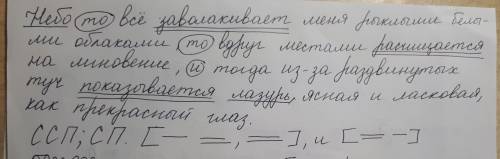 Небо то всё заволакивает меня рыхлыми бело-
ми облаками то вдруг местами расчищается
на мгновение, и тогда из-за раздвинутых
туч показывается лазурь, ясная и ласковая,
как прекрасный глаз.
ССП; СП. [— =, =], и [= —]